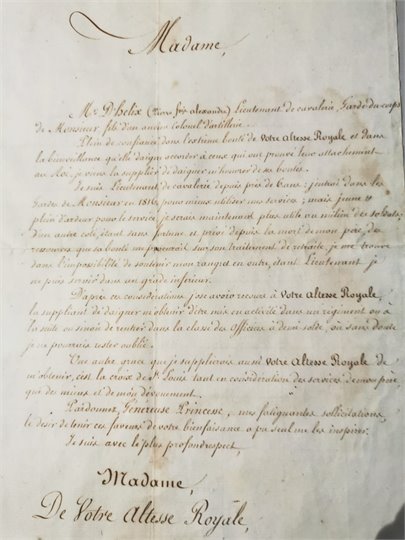 Madame,
Mr. D'helix (Pierre frs. alexandre) Lieutenant de cavalerie, Garde du corps
de Monsieur, fils d'un ancien Colonel d'artillerie.
Plein de confiance dans l'extrême bonté de Votre Altesse Royale et dans
la bienveillance qu'elle daigne accorder à ceux qui ont prouvé leur attachement
au Roi, je viens la supplier de daigner m'honorer de ses bontés.
Je suis Lieutenant de cavalerie depuis près de 6 ans: j'entrai dans les
Gardes de Monsieur en 1814 pour mieux utiliser mes services; mais jeune et
plein d'ardeur pour le service, je serais maintenant plus utile au milieu des soldats,
d'un autre côté, étant sans fortune et privé depuis la mort de mon père, des
ressources que sa bonté me procurait sur son traitement de retraite, je me trouve
dans l'impossibilité de soutenir mon rang et en outre, étant Lieutenant je
ne puis servir dans un grade inférieur.
D'après ces considérations j'ose avoir recours à Votre Altesse Royale,
la suppliant de daigner m'obtenir d'être mis en activité dans un régiment ou à
la suite ou sinon de rentrer dans la classe des officiers à demi solde, où sans doute
je ne pourrais rester oublié.
Une autre grace que je supplierais aussi Votre Altesse Royale de
m'obtenir, c'est la croix de St. Louis tant en considération des services de mon père
que des miens et de mon dévouement.
Pardonnez, Généreuse Princesse, mes fatiguantes sollicitations,
le desir de tenir ces faveurs de votre bienfaisance a pu seul me les inspirer.
Je suis avec le plus profond respect,
Madame,
De Votre Altesse Royale,